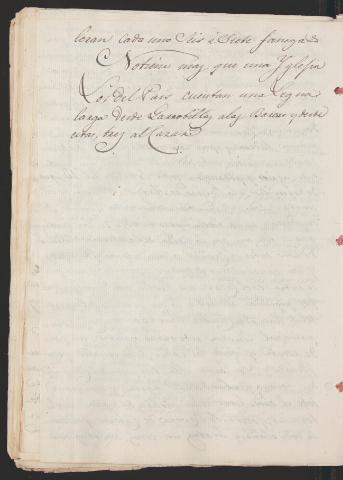 loran cada uno Seis ó Siete fanegas
No tiene mas que una Yglesia
Los del Pais cuentan una Legua
larga desde Larrobilla, a las Bocas y desde
estas, tres al Cazar